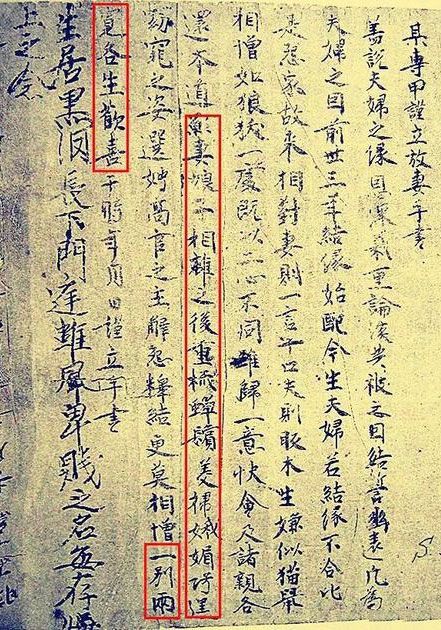 某專甲謹立放妻手書
蓋說夫婦之緣恩深義重論談共被之因結誓幽遠凡為
夫婦之因前世三年結緣始配今生夫婦若結緣不合比
是怨家故來相對妻則一言十口夫則販木生嫌似猫鼠
相憎如狼犺一處既以二心不同難歸一意快會及諸親各
還本道願妻娘子相離之後重梳蟬鬢美掃娥媚巧逞
窈窕之姿選娉高官之主解怨釋結更莫相憎一別兩
寬各生歡喜于時年月日謹立手書
生居黑長下門庭難卑賤之名無存
上之念
S.